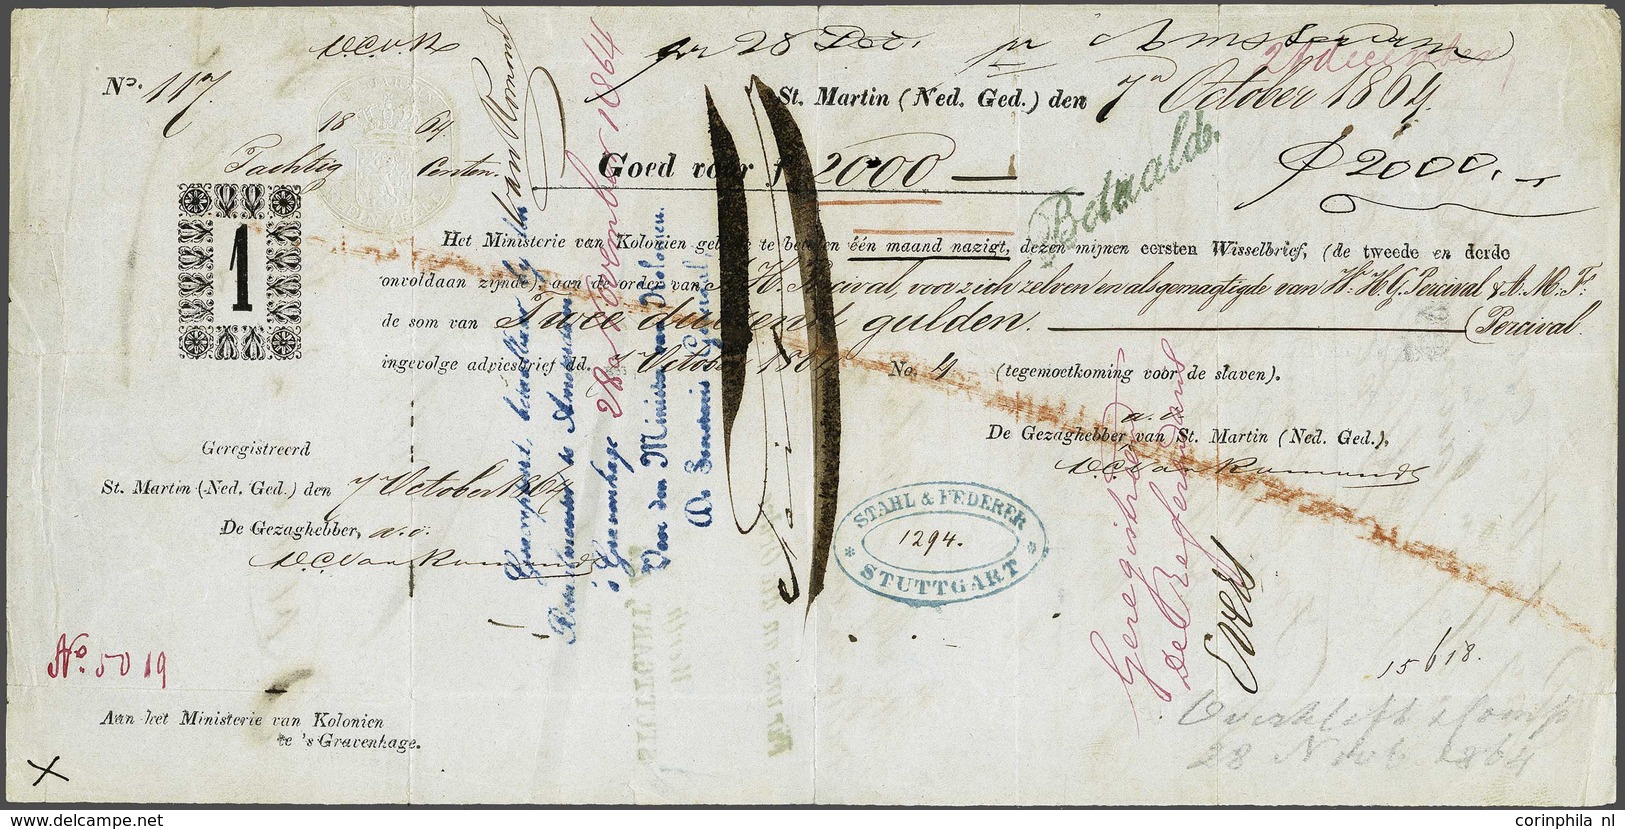 v.C.v.R
pr 28 Dec. pr Amsterdam
28 december
No. 117.
St. Martin (Ned. Ged.) den 7n October 1864.
18 64
Tachtig Centen.
Goed voor f 2000 —
f 2000. —
Betaald.
1
Het Ministerie van Kolonien gelieve te betalen één maand nazigt, dezen mijnen eersten Wisselbrief, (de tweede en derde
onvoldaan zijnde), aan de order van H. Percival, voor zich zelven en als gemagtigde van Hr. H. G. Percival & A. M. Fs.
Percival
de som van Twee duizend gulden.
ingevolge adviesbrief dd. 7 October 1864 No. 4 (tegemoetkoming voor de slaven).
a.o.
De Gezaghebber van St. Martin (Ned. Ged.),
v.C. Van Romondt
Geregistreerd
St. Martin (Ned. Ged.) den 7 October 1864
De Gezaghebber, a.o.
v.C. Van Romondt
Van Romondt
Geaccepteerd, betaalbaar bij den
Betaalmeester te Amsterdam
's Gravenhage 28 November 1864
Voor den Minister van Kolonien.
De Secretaris Generaal,
STAHL & FEDERER
1294.
* STUTTGART *
Geregistreerd
De Referendaris
Evers
No. 5019
15618.
28 Novb. 1864
Aan het Ministerie van Kolonien
te 's Gravenhage.
X
corinphila nl